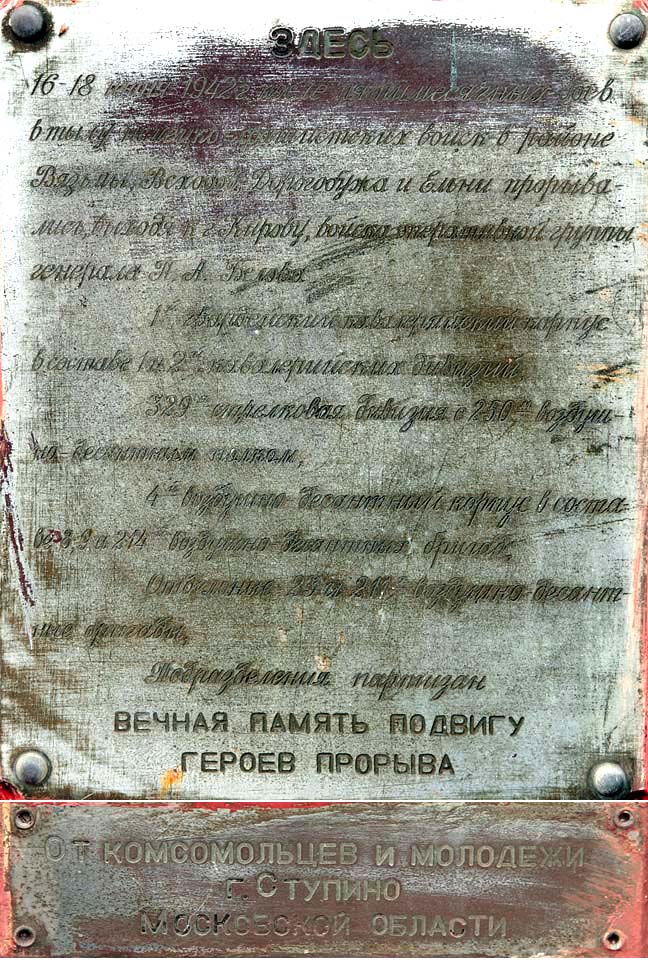 ЗДЕСЬ
16-18 июня 1942г. после пятимесячных боев
в тылу немецко-фашистских войск в районе
Вязьмы, Всходов, Дорогобужа и Ельни прорыва-
лись, выходя к г. Кирову, войска оперативной группы
генерала П. А. Белова
1й гвардейский кавалерийский корпус
в составе 1 и 2й кавалерийских дивизий
329я стрелковая дивизия с 250м воздуш-
но-десантным полком,
4й воздушно-десантный корпус в соста-
ве 8, 9 и 214й воздушно-десантных бригад,
Отдельные 23 и 211я воздушно-десант-
ные бригады,
Подразделения партизан
ВЕЧНАЯ ПАМЯТЬ ПОДВИГУ
ГЕРОЕВ ПРОРЫВА
ОТ КОМСОМОЛЬЦЕВ И МОЛОДЕЖИ
г. СТУПИНО
МОСКОВСКОЙ ОБЛАСТИ